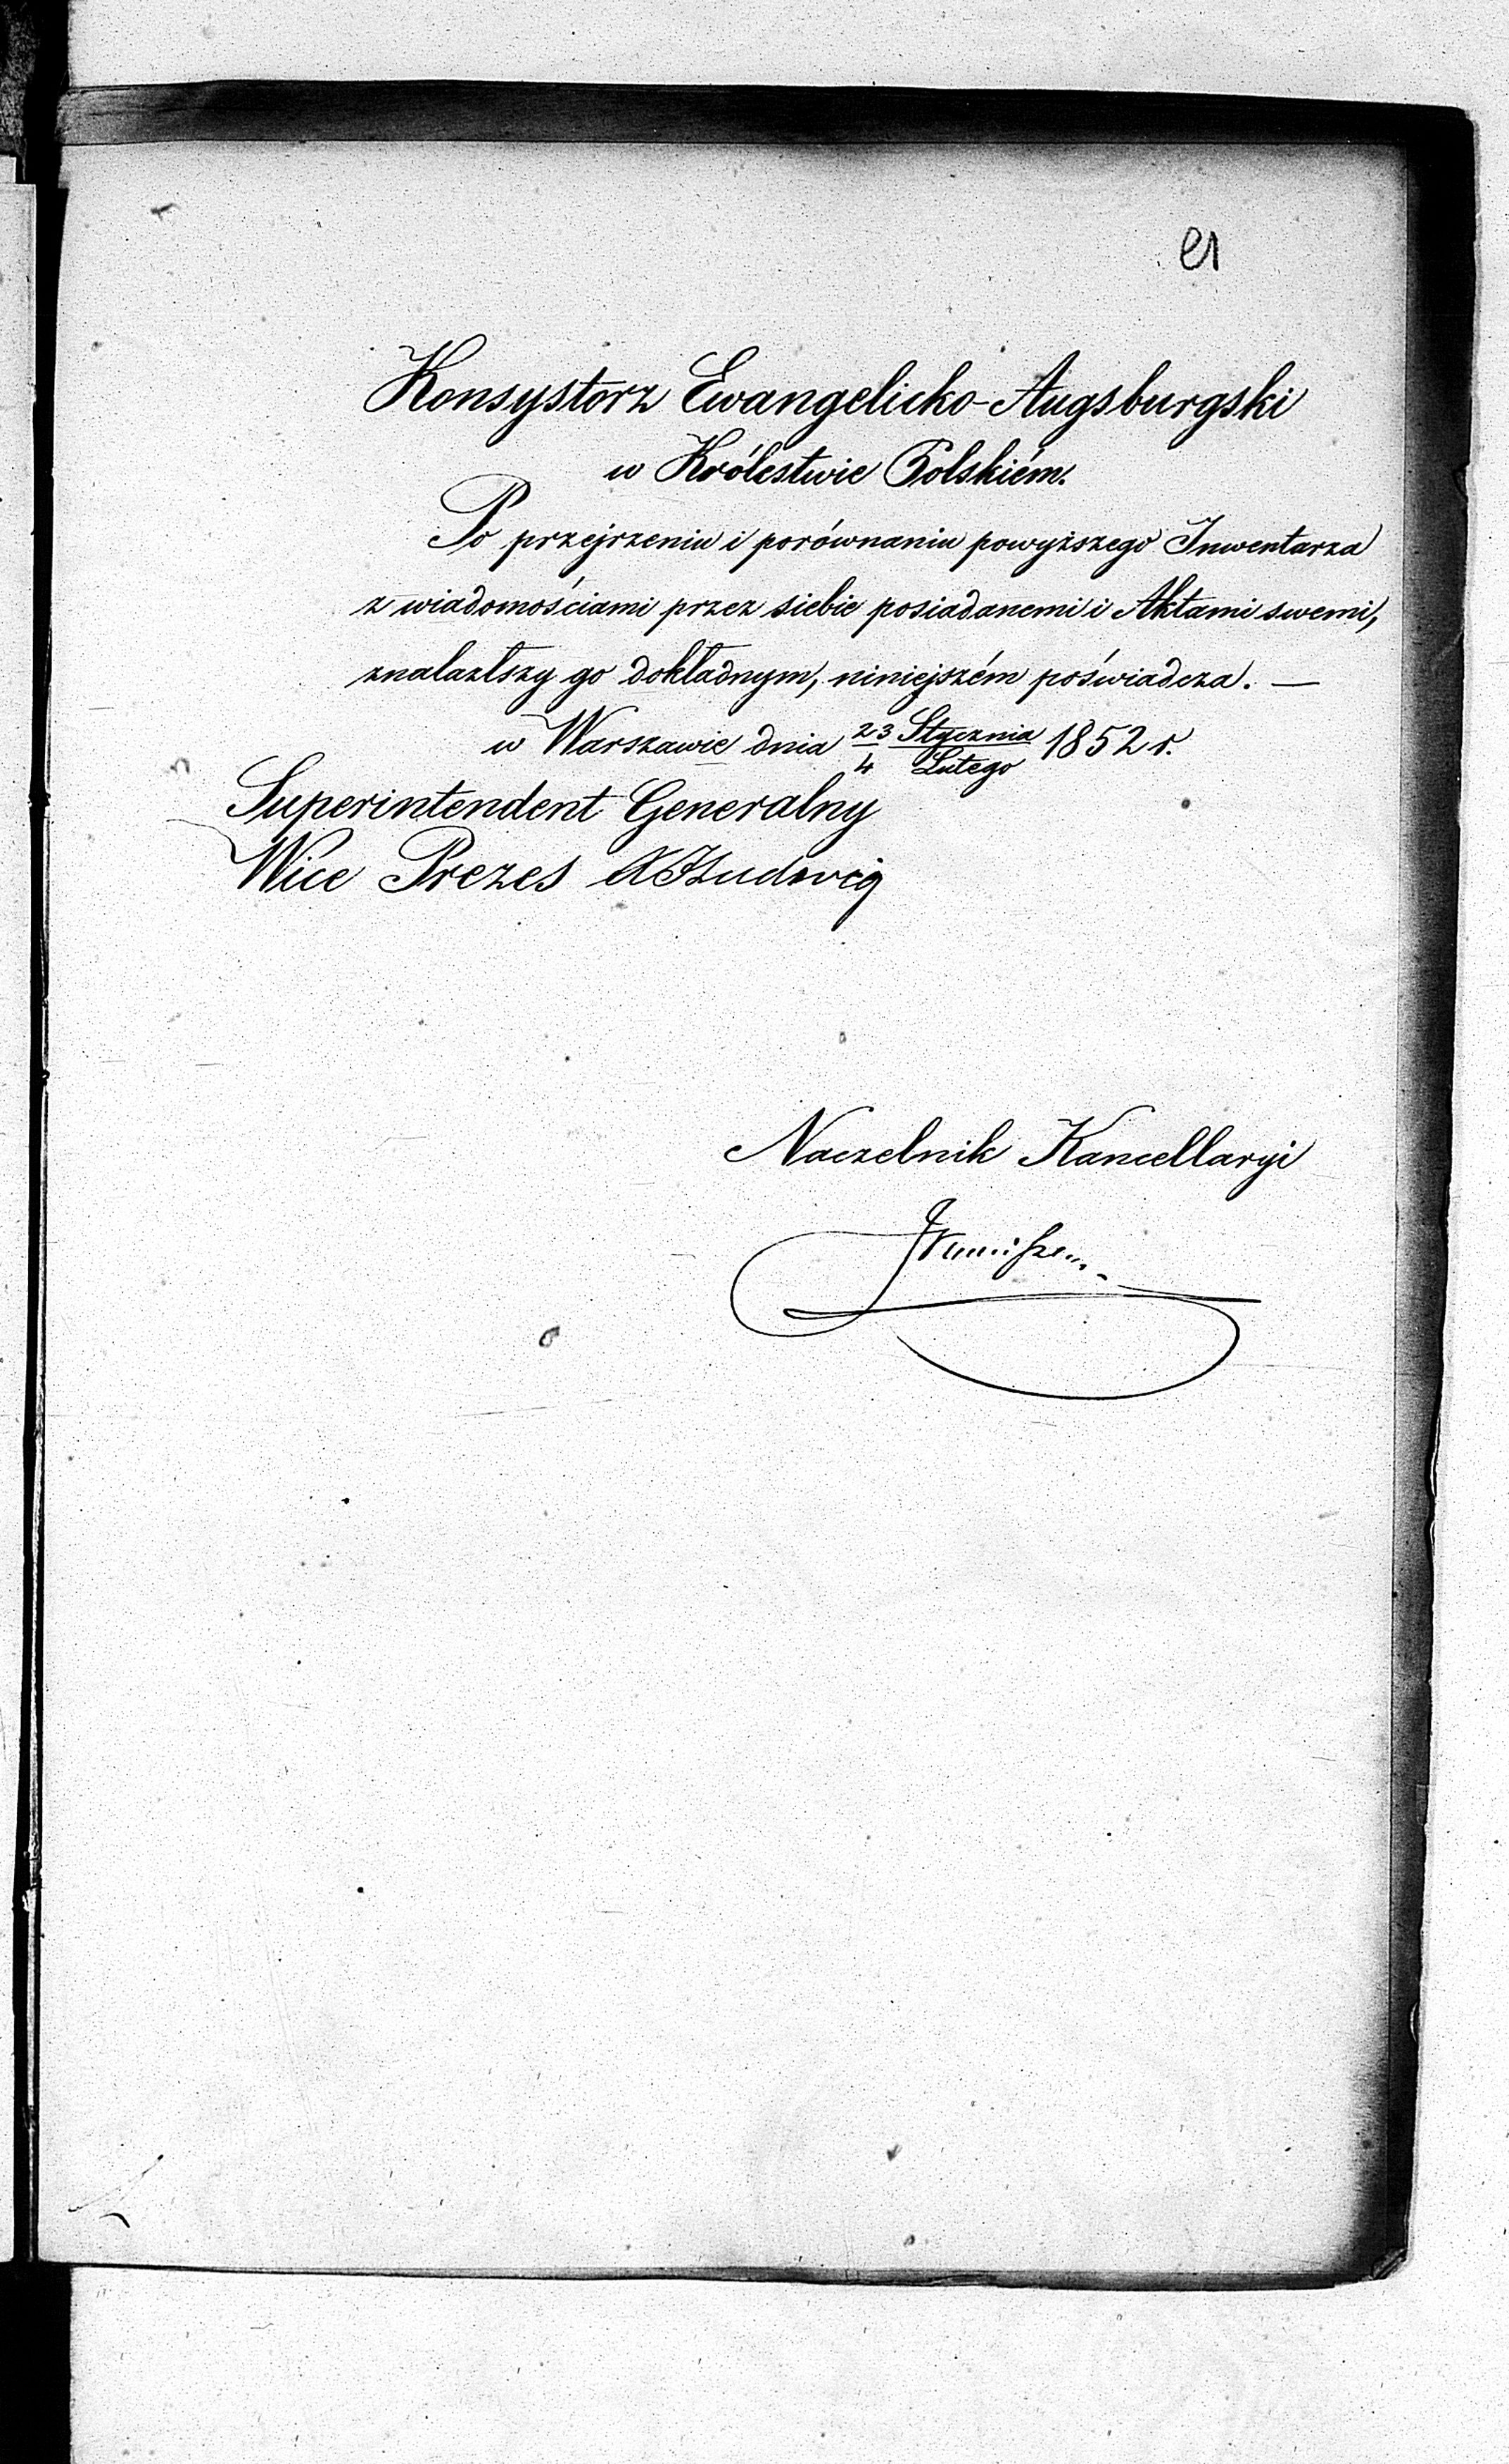 Konsystorz Ewangelicko-Augsburgski
w Królestwie Polskiém.
Po przejrzeniu i porównaniu powyższego Inwentarza
z wiadomościami przez siebie posiadanemi i Aktami swemi,
znalazłszy go dokładnym, niniejszém poświadcza. —
w Warszawie dnia 23 Stycznia / 4 Lutego 1852 r.
Superintendent Generalny
Wice Prezes Ludwig
Naczelnik Kancellaryi